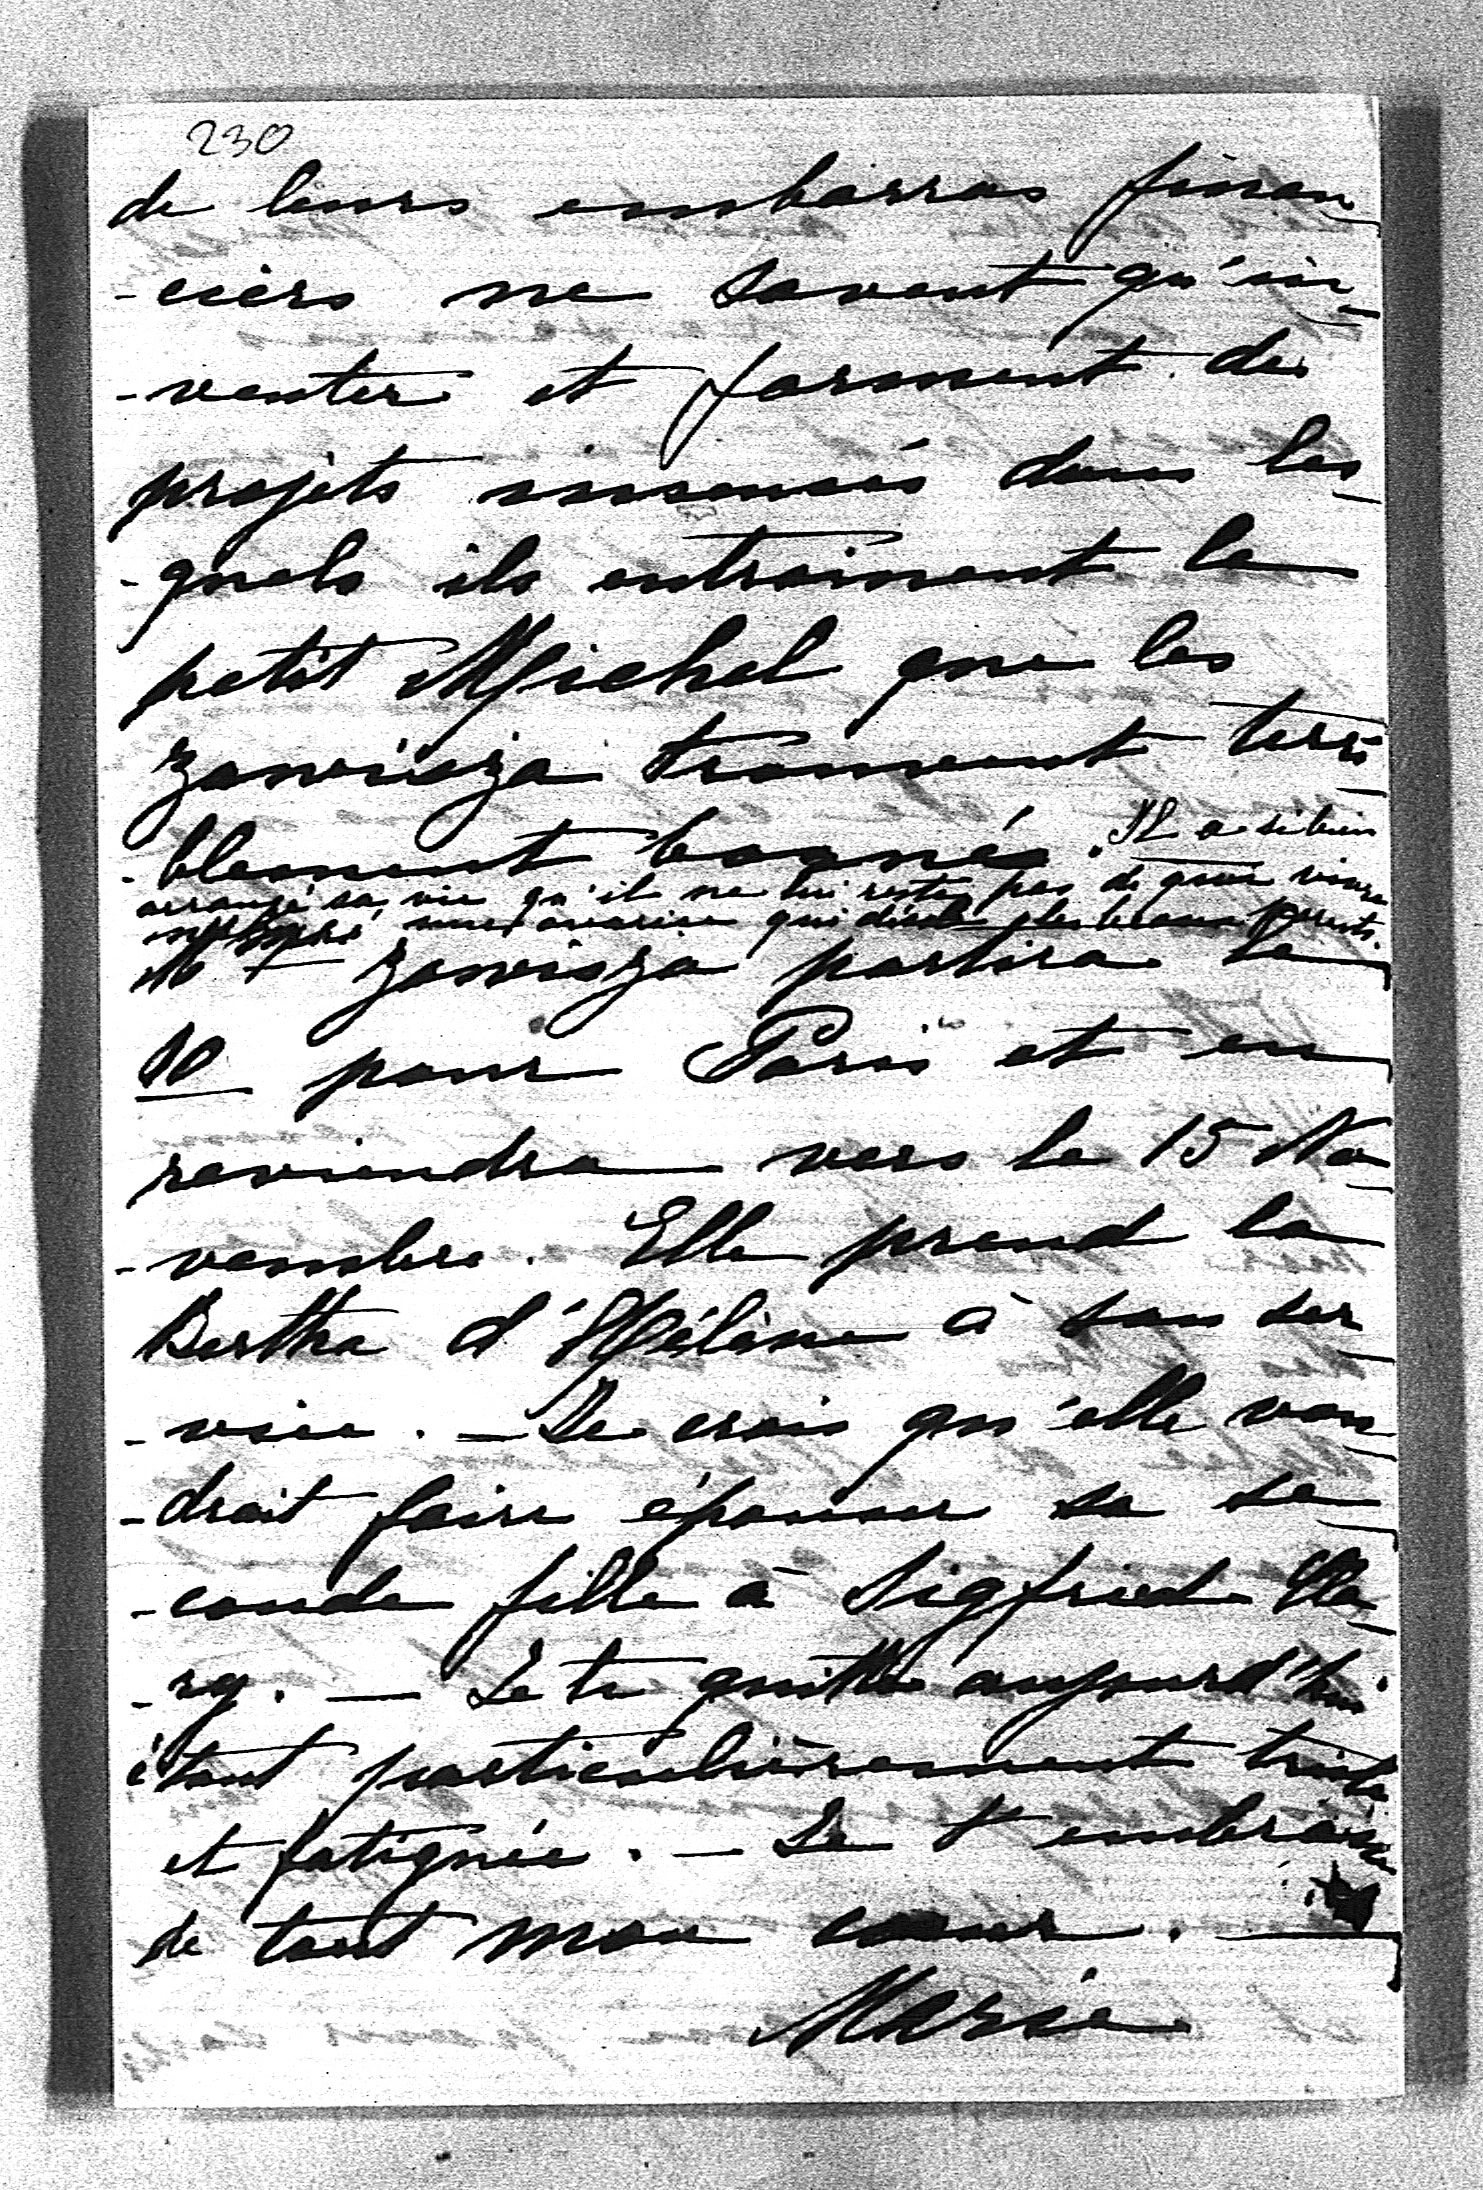 230
de leurs embarras finan
-ciers ne savent qu'in
-venter et forment des
projets insensés dans les
-quels ils entrainent le
petit Michel que les
Zawisza trouvent terri
-blement bornés. Il a si bien
arrangé sa vie qu'il ne lui reste pas de quoi vivre
malgré une avarice qui désole les beaux parents.
M Zawisza partira le
10 pour Paris et en
reviendra vers le 15 No
-vembre. Elle prend la
Bertha d'Hélène à son ser
-vice. — Je crois qu'elle vou
-drait faire épouser sa se
-conde fille à Sigfried Cla
-ry. — Je te quitte aujourd'hui
étant particulièrement triste
et fatiguée. — Je t'embrasse
de tout mon coeur. —
Marie